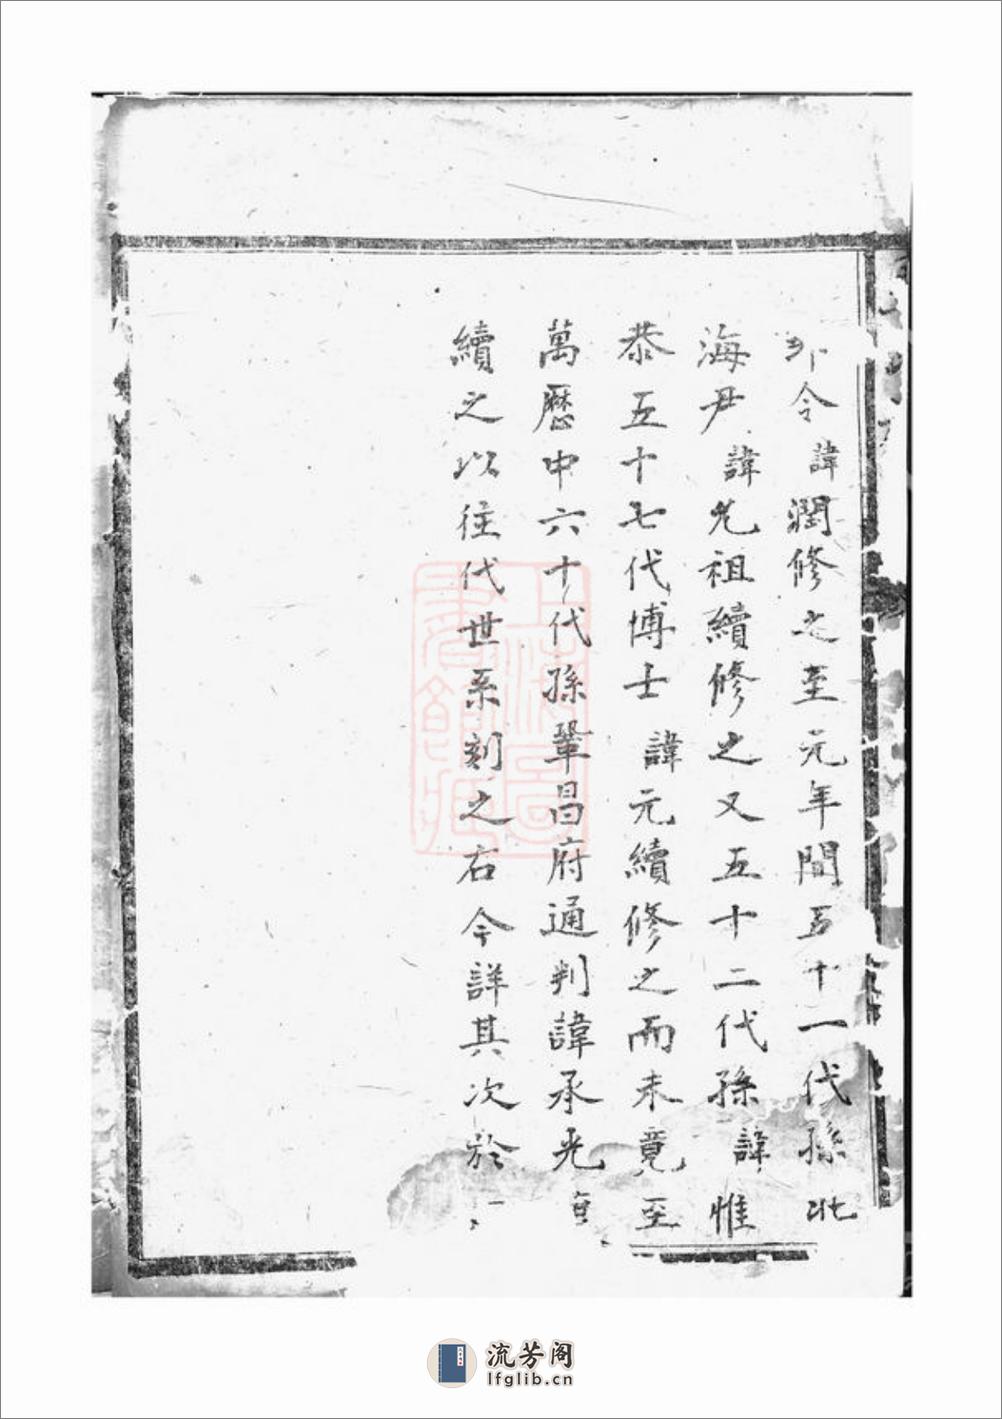 令諱潤修之至元年間五十一代孫北
海尹諱先祖續修之又五十二代孫諱惟
恭五十七代博士諱元續修之而未竟至
萬曆中六十代孫鞏昌府通判諱承光
續之以往代世系刻之右今詳其次於
流芳阁
lfglib.cn